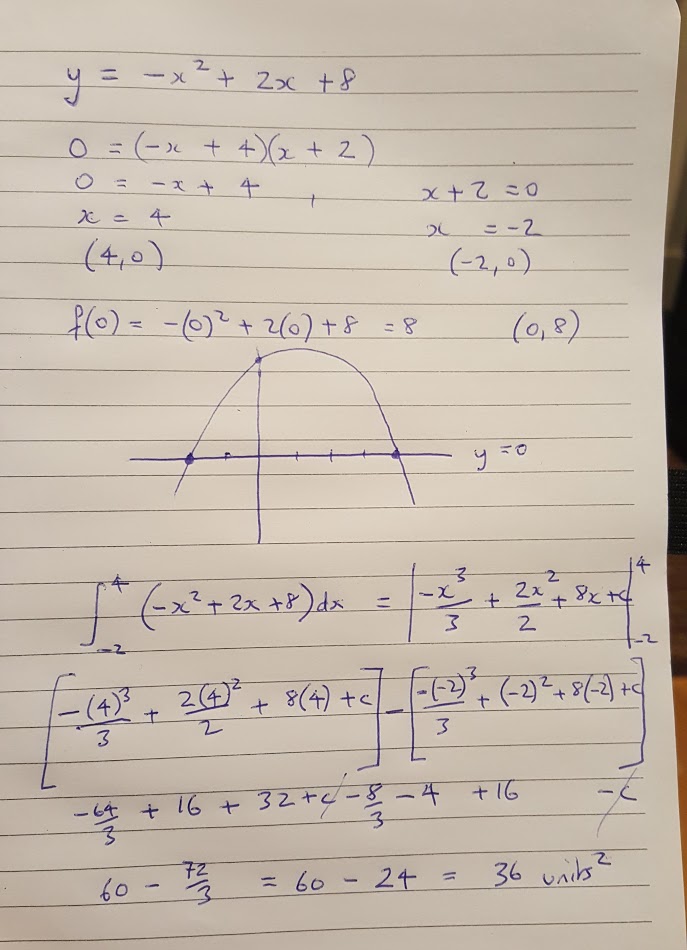 y = -x² + 2x + 8
0 = (-x + 4)(x + 2)
0 = -x + 4 , x + 2 = 0
x = 4 x = -2
(4,0) (-2,0)
f(0) = -(0)² + 2(0) + 8 = 8 (0,8)
y = 0
∫₋₂⁴ (-x² + 2x + 8) dx = |-x³/3 + 2x²/2 + 8x + c|₋₂⁴
[-(4)³/3 + 2(4)²/2 + 8(4) + c] - [-(-2)³/3 + (-2)² + 8(-2) + c]
-64/3 + 16 + 32 + c - 8/3 - 4 + 16 - c
60 - 72/3 = 60 - 24 = 36 units²